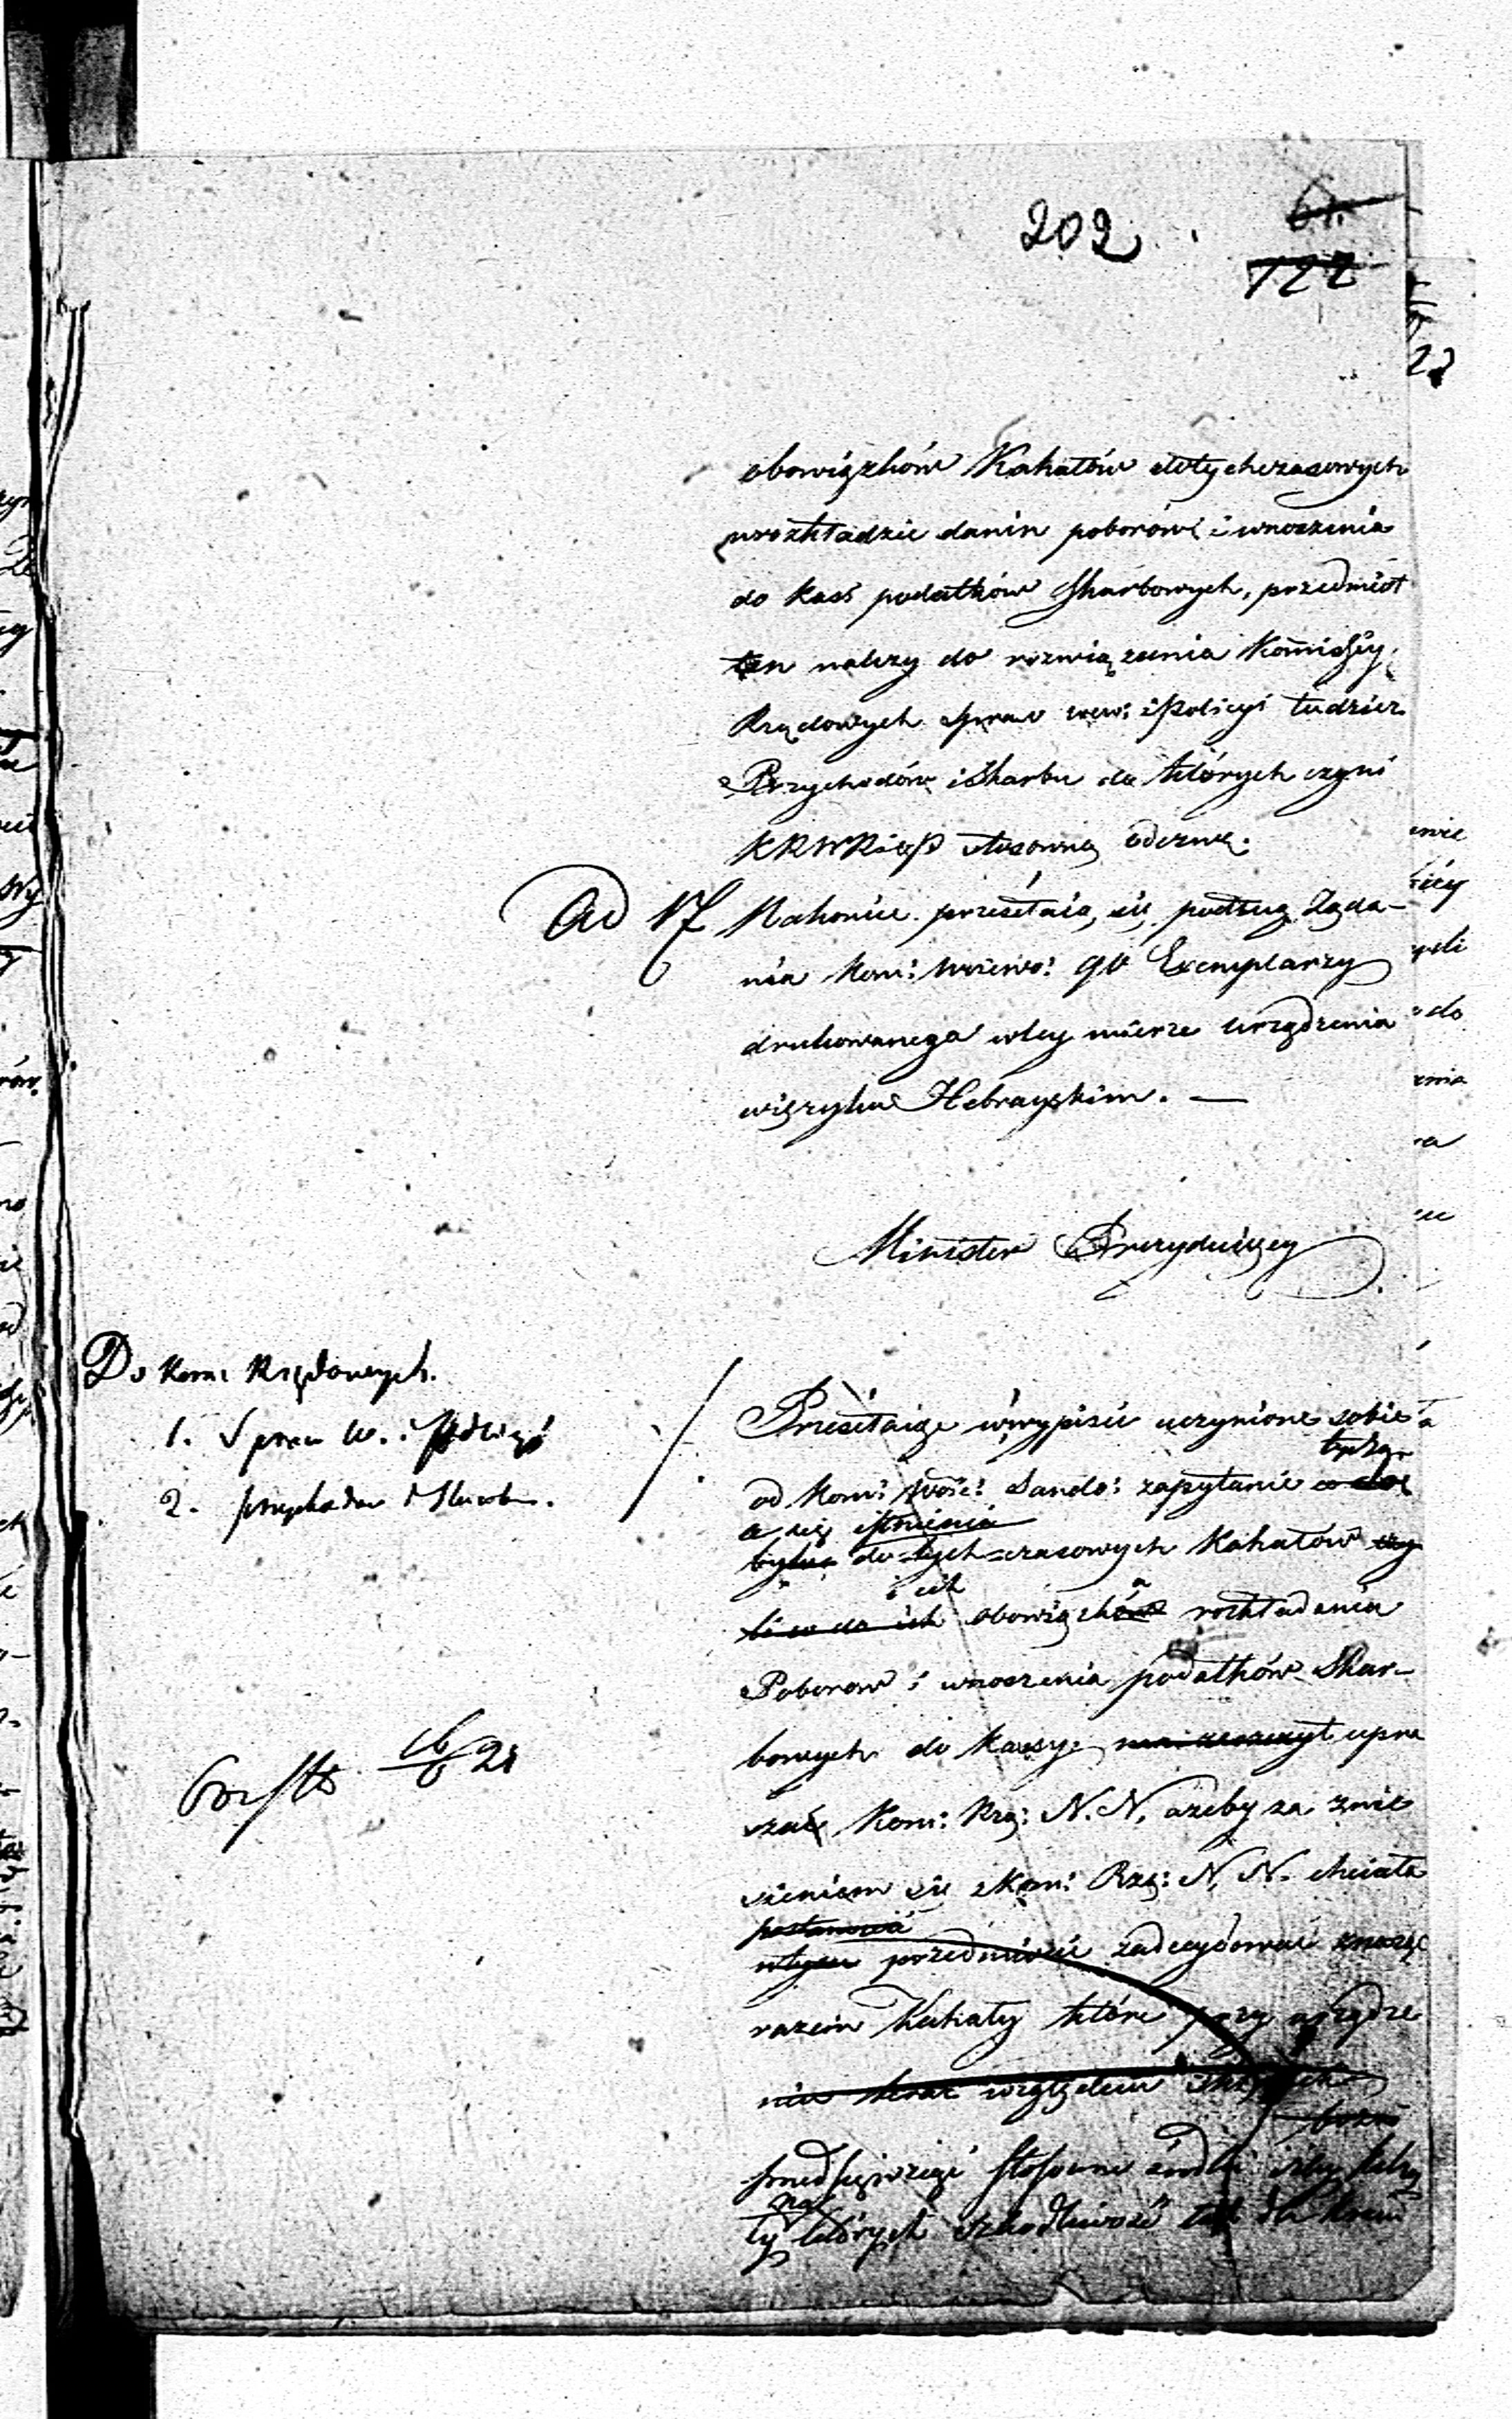 202
61.
122
obowiązków Kahałów dotychczasowych
w rozkładzie danin poborów i wnoszenia
do Kass podatków Skarbowych, przedmiot
ten należy do rozwiązania Kommissyy
Rządowych Spraw wew: i Policyi tudzież
Przychodów i Skarbu do których czyni
KRWRiOP stosowną odezwę.
Ad 17 Nakoniec przesełaią się podług żąda-
nia Kom: Woiewo: 90 Exemplarzy
drukowanego w tey mierze urządzenia
w ięzyku Hebrayskim. —
Minister Prezyduiący
Do Kom: Rządowych.
1. Spraw W. i Policyi
2. Przychodów i Skarbu.
Przesełaiąc w wypisie uczynione sobie
od Kom: Woie: Sando: zapytanie co do
a się istnienia
bytu dotychczasowych Kahałów czy
i ich
li co do ich obowiązków rozkładania
Poborow i wnoszenia podatków Skar-
bowych do Kassy, ma zaszczyt upra
szać Kom: Rzą: N. N. ażeby za znie
sieniem się z Kom: Rzą: N. N. chciała
postanowić
w tym przedmiocie zadecydować znosząc
razem Kahały które przy urządze
niu teraz względem
przedsięwziąć stosowne środki iżby Kaha
ły których szkodliwość tak dla kraiu